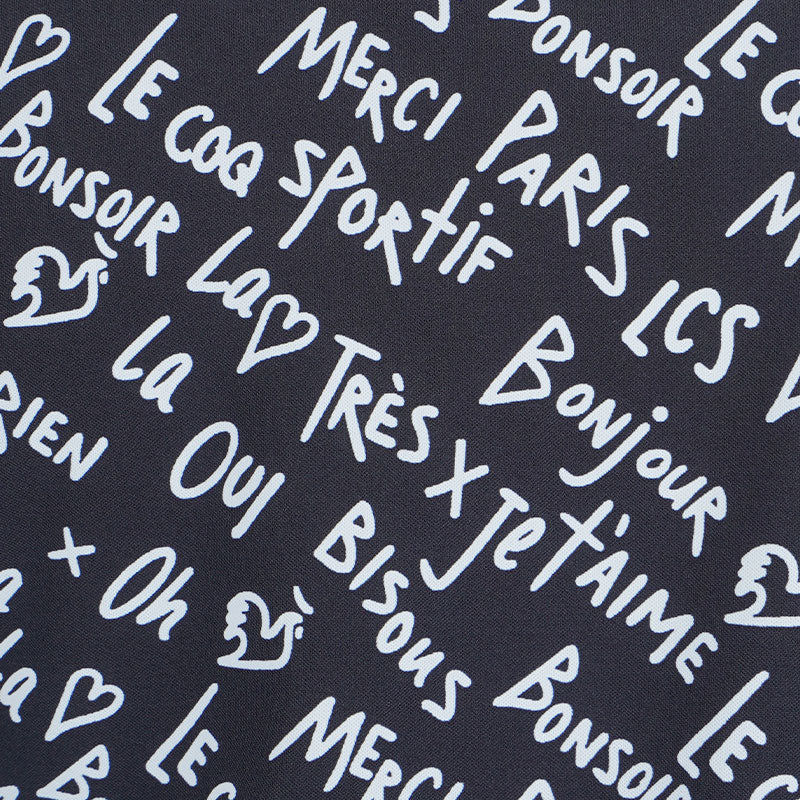 BONSOIR
LE
LE COQ SPORTIF
MERCI PARIS LCS
BONSOIR
La
TRÈS x Je t'AIME
Bonjour
La
OUI
BISOUS
BONSOIR
x Oh
LE
LE
MERCI